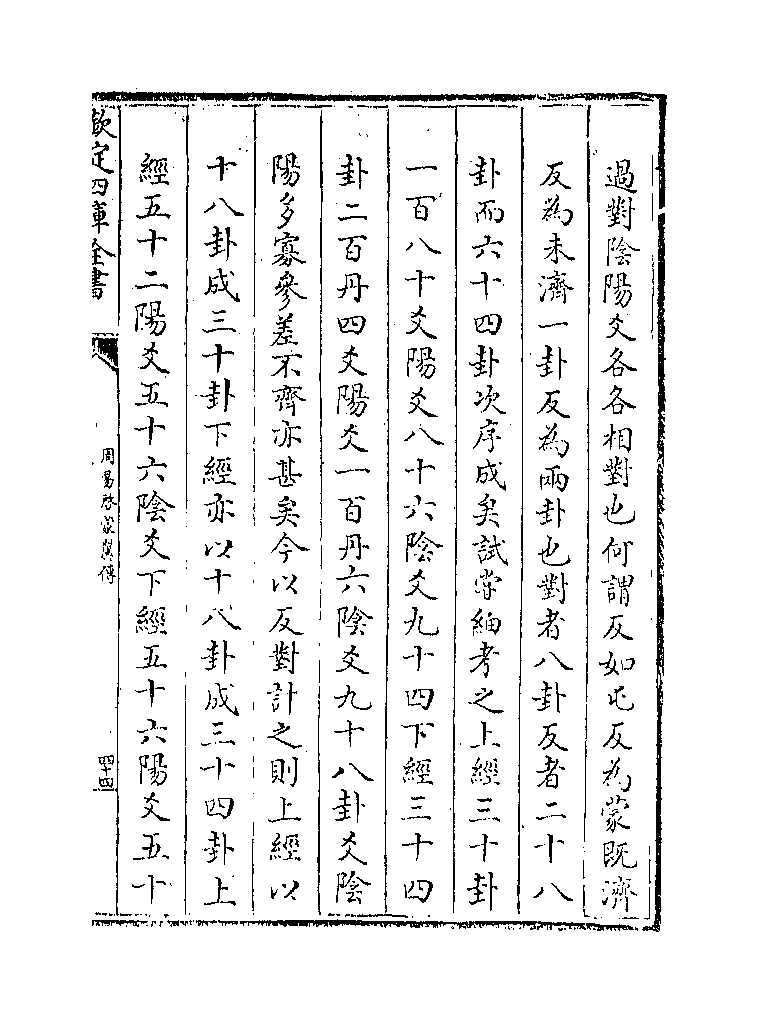 過對陰陽爻各各相對也何謂反如屯反為蒙既濟
反為未濟一卦反為兩卦也對者八卦反者二十八
卦而六十四卦次序成矣試嘗紬考之上經三十卦
一百八十爻陽爻八十六陰爻九十四下經三十四
卦二百丹四爻陽爻一百丹六陰爻九十八卦爻陰
陽多寡參差不齊亦甚矣今以反對計之則上經以
十八卦成三十卦下經亦以十八卦成三十四卦上
經五十二陽爻五十六陰爻下經五十六陽爻五十
欽定四庫全書
周易啓蒙翼傳
四十四